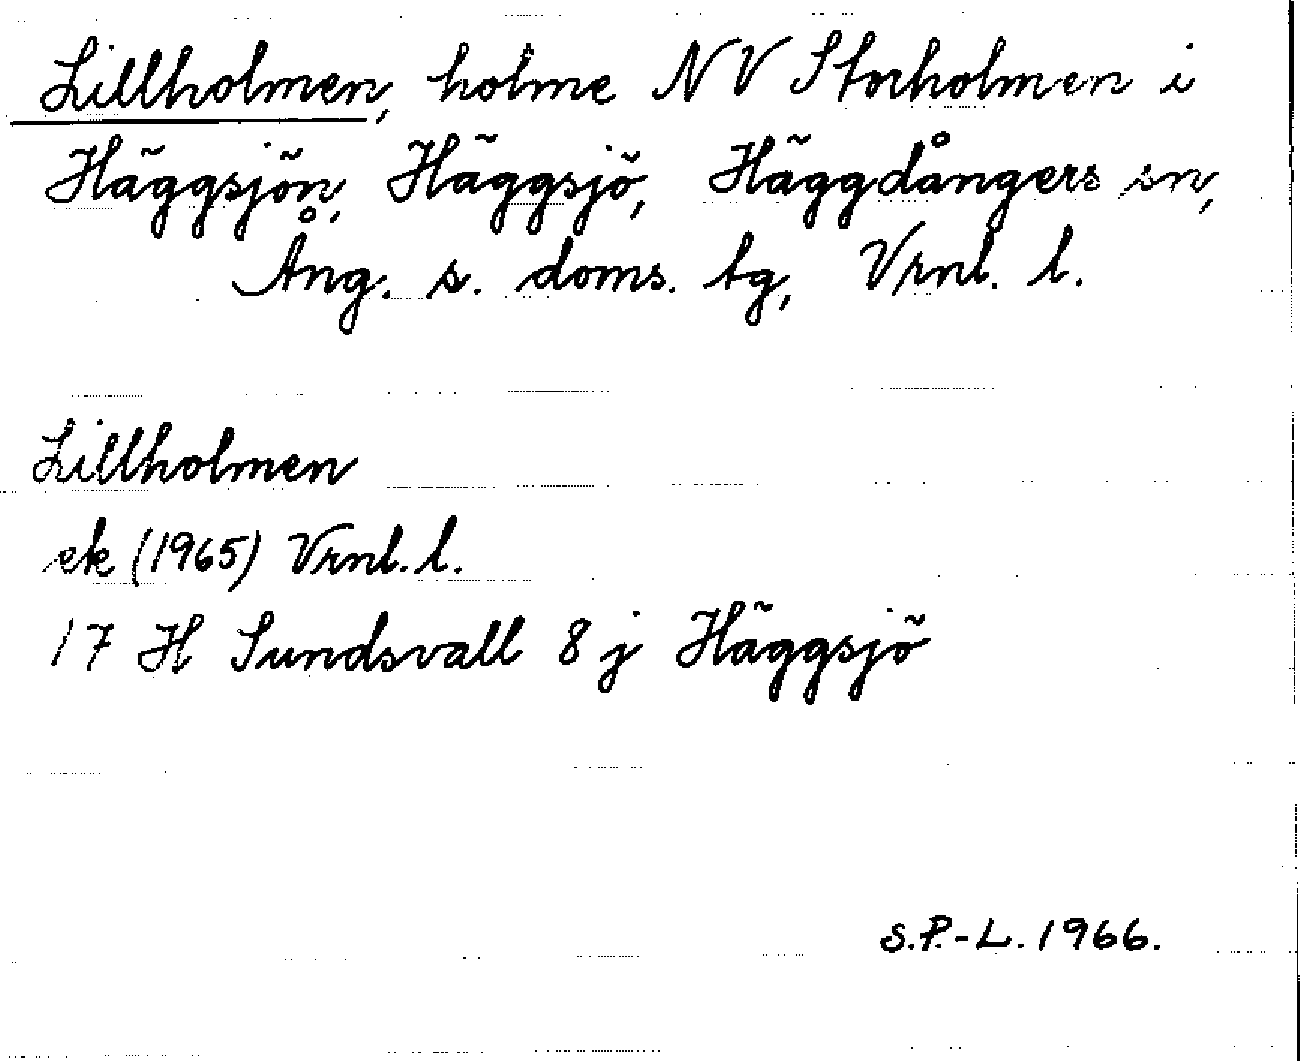 Lillholmen, holme NV Storholmen i
Häggsjön, Häggsjö, Häggdångers sn,
Ång. s. doms. tg, Vrnl. l.
Lillholmen
ek (1965) Vrnl. l.
17 H Sundsvall 8 j Häggsjö
S.P.-L. 1966.